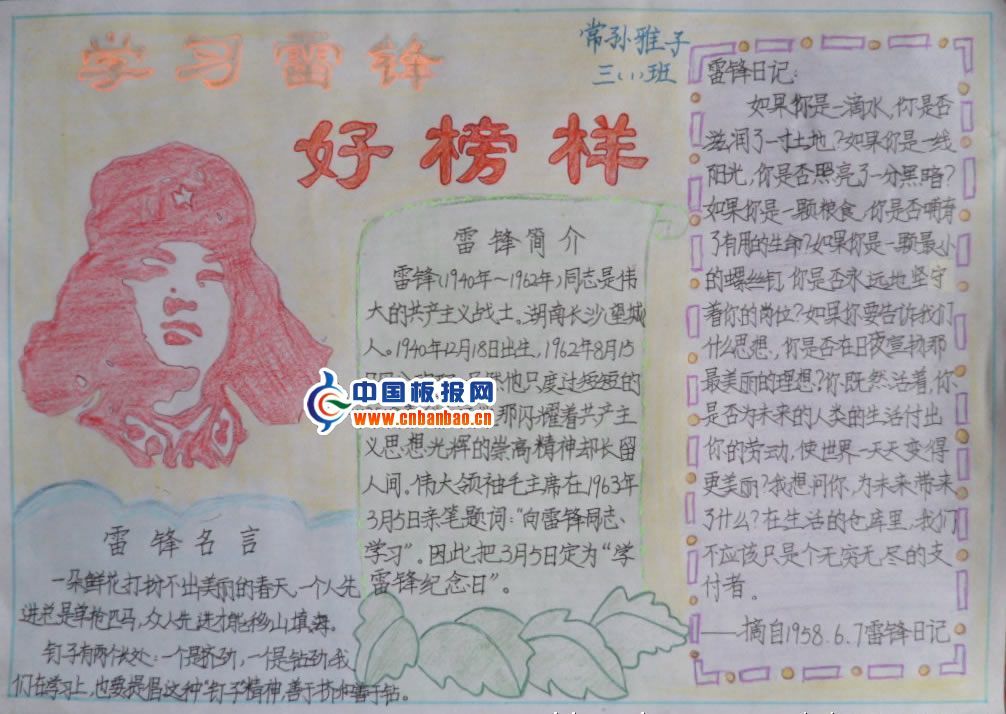 学习雷锋
好榜样
常孙雅子
三(1)班
雷锋简介
雷锋(1940年～1962年)同志是伟
大的共产主义战士。湖南长沙望城
人。1940年12月18日出生,1962年8月15
他只度过短短的
那闪耀着共产主
义思想光辉的崇高精神却长留
人间。伟大领袖毛主席在1963年
3月5日亲笔题词:“向雷锋同志
学习”。因此把3月5日定为“学
雷锋纪念日”。
中国板报网
www.cnbanbao.cn
雷锋名言
一朵鲜花打扮不出美丽的春天,一个人先
进总是单枪匹马,众人先进才能移山填海。
钉子有两个长处:一个是挤劲,一个是钻劲,我
们在学习上,也要提倡这种“钉子”精神,善于挤和善于钻。
雷锋日记:
如果你是一滴水,你是否
滋润了一寸土地?如果你是一线
阳光,你是否照亮了一分黑暗?
如果你是一颗粮食,你是否哺育
了有用的生命?如果你是一颗最小
的螺丝钉,你是否永远地坚守
着你的岗位?如果你要告诉我们
什么思想,你是否在日夜宣扬那
最美丽的理想?你既然活着,你
是否为未来的人类的生活付出
你的劳动,使世界一天天变得
更美丽?我想问你,为未来带来
了什么?在生活的仓库里,我们
不应该只是个无穷无尽的支
付者。
——摘自1958.6.7雷锋日记